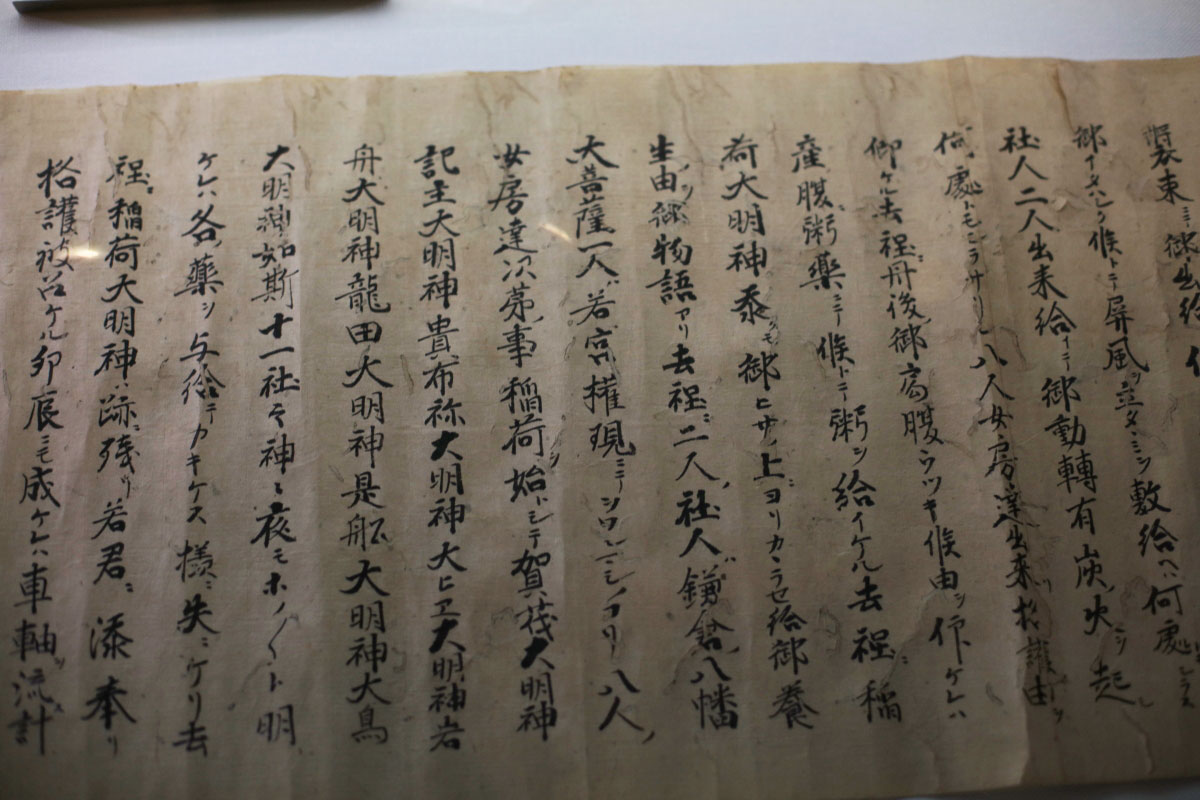 装束ニ御出給
御イタハシク候トテ屏風ヲ立タヽミヲ敷給ヘハ何處
社人二人出来給イテ御動轉有炭ノ火ヲ起シ
何ノ處トモシラサリシ八人女房達出来格護由ヲ
御ケル去程ニ丹後御局腹ウツキ候由ヲ仰ケレハ
産腹粥藥ニテ候トテ粥ヲ給イケル去程ニ稲
荷大明神忝モ御ヒサノ上ニヨリカヽラセ給御養
生ノ由御物語アリ去程ニ二人ノ社人ハ鎌倉ノ八幡
大菩薩一人ハ若宮権現ニテ八人ノ
女房達次第事稲荷ヲ始トシテ賀茂大明神
記主大明神貴布祢大明神大ヒヱ大明神岩
舟大明神龍田大明神是船大明神大鳥
大明神如斯十一社ノ神々夜モホノ〱ト明
ケレハ各ノ藥ヲ与給テカキケス様ニ失ニケリ去
程ニ稲荷大明神ハ跡ニ残リ若君ニ添奉リ
格護被召ケル卯辰ニモ成ケレハ車軸ヲ流計